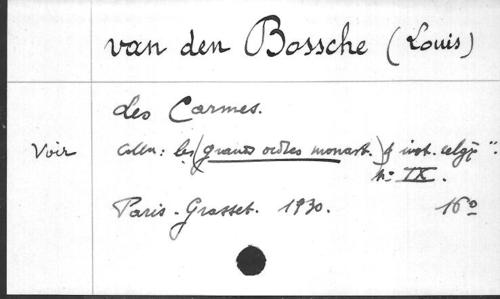 van den Bossche (Louis)
Les Carmes.
Voir Collon: les (grands ordres monast.) & inst. relig "
no IX.
Paris - Grasset. 1930. 16o